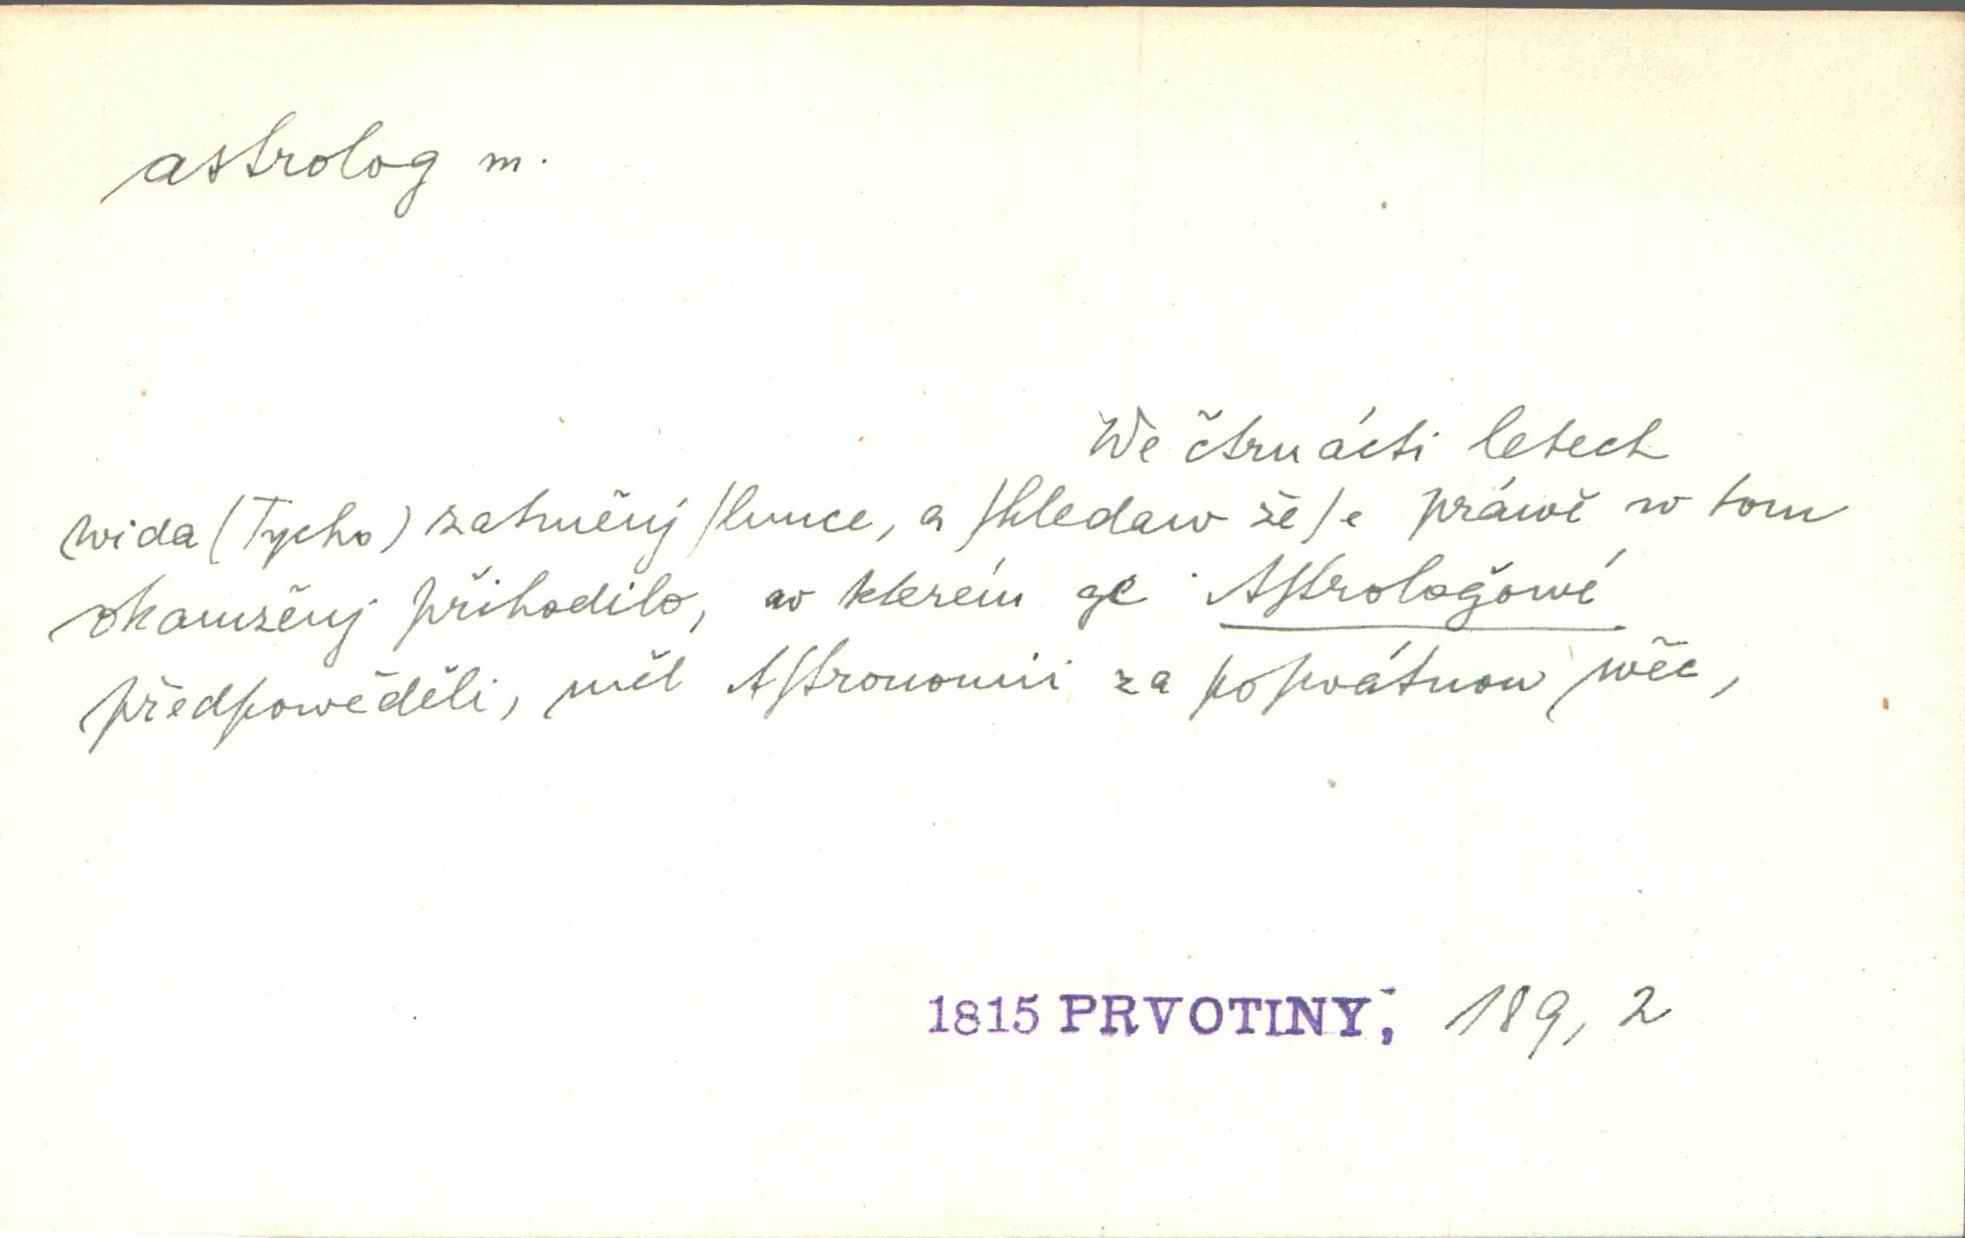 astrolog m.
We čtrnácti letech
wida (Tycho) zatměnj ſlunce, a ſhledaw že ſe práwě w tom
okamženj přihodilo, w kterém ge Aſtrologǒwé
předpowěděli, měl Aſtronomii za poſwátnou wěc,
1815 PRVOTINY, 189, 2